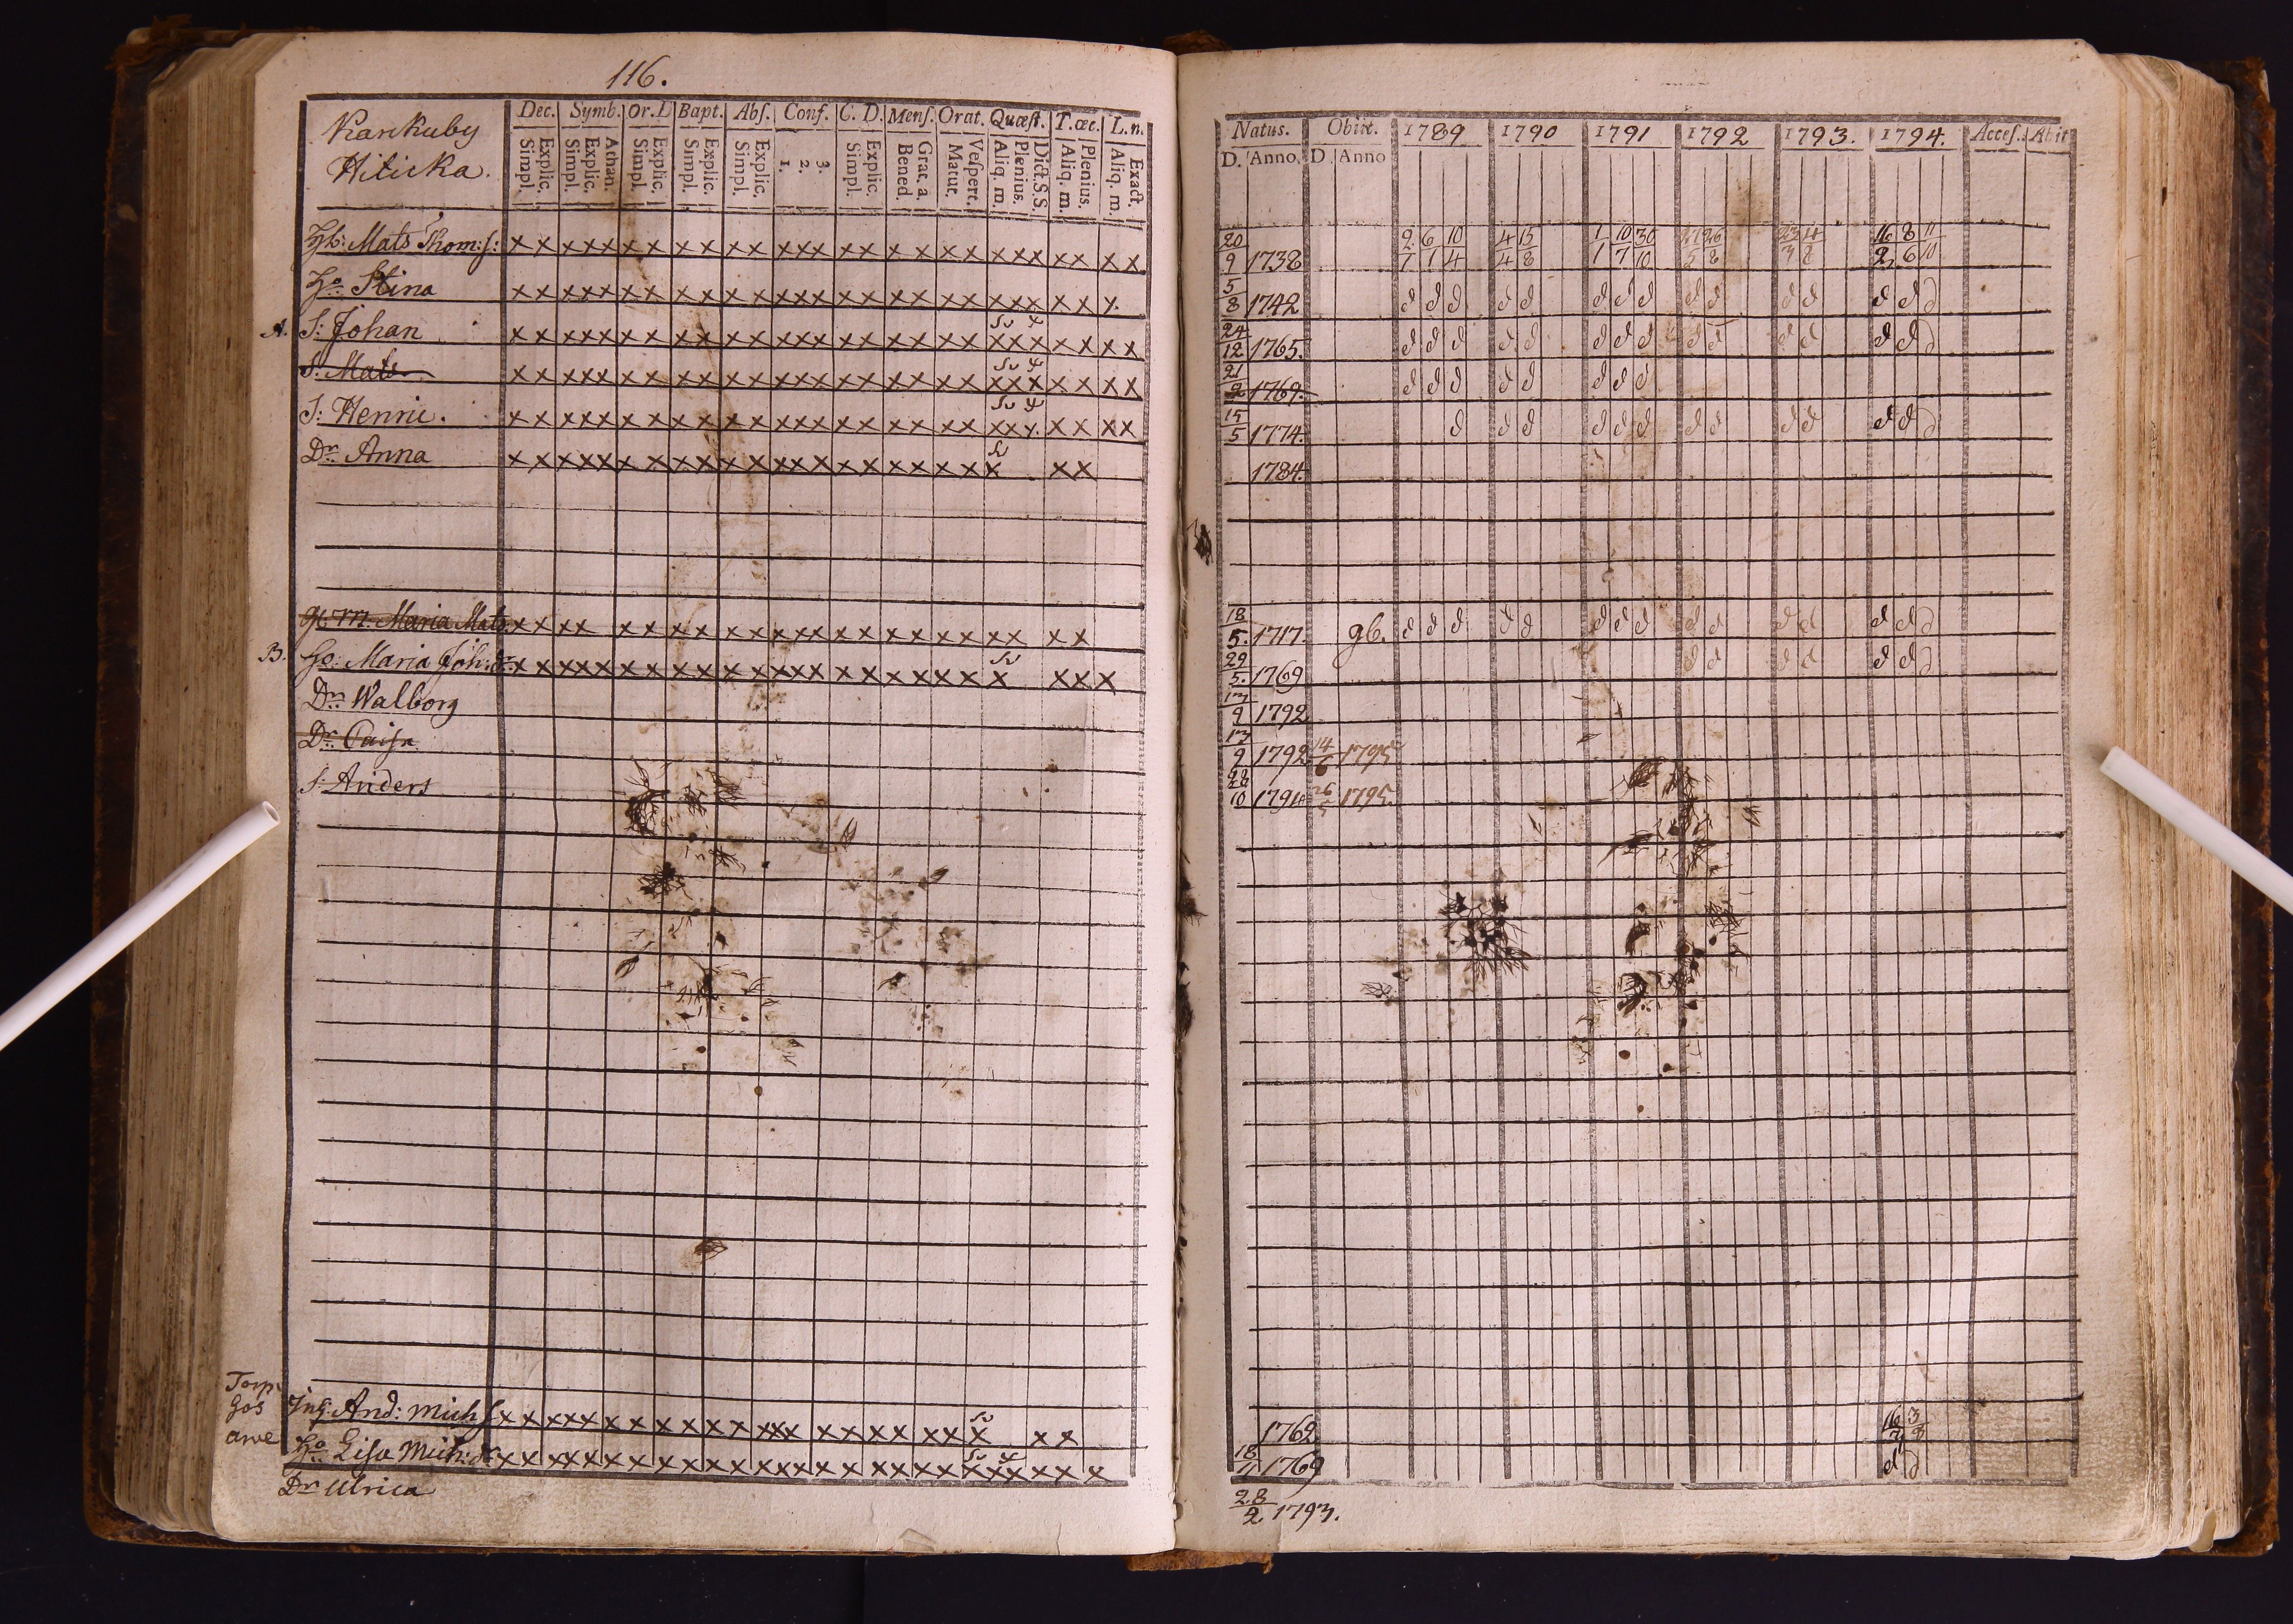 116.
Kankuby
Hiticka.
Dec. Symb. Or. D Bapt. Abſ. Conf. C. D. Menſ. Orat. Quæſt. T. œc. L. n.
Explic. Simpl. Athan. Explic. Simpl. Explic. Simpl. Explic. Simpl. Explic. Simpl. 3. 2. 1. Explic. Simpl. Grat. a. Bened. Veſpert. Matut. Dict. S. S Plenius. Aliq. m. Plenius. Aliq. m. Exact. Aliq. m.
Hb: Mats Thom: ſ: x x x x x x x x x x x x x x x x x x x x x x x x x x x
Ho Stina x x x x x x x x x x x x x x x x x x x x x x x x x x
A. S: Johan x x x x x x x x x x x x x x x x x x x x x x x x x x x
S. Mats x x x x x x x x x x x x x x x x x x x x x x x x x x x
S: Henric. x x x x x x x x x x x x x x x x x x x x x x x x x x x
Dr Anna x x x x x x x x x x x x x x x x x x x x x x x
gb. m. Maria Mats x x x x x x x x x x x x x x x x x x x x x x x
B. Ho: Maria Joh: dr x x x x x x x x x x x x x x x x x x x x x x x x
Dr Walborg
Dr Caisa
S: Anders
Torp
gos
arve
Inh: And: Mich ſ x x x x x x x x x x x x x x x x x x x x x x x
Ho Lisa Mich: dr x x x x x x x x x x x x x x x x x x x x x x x x x x
Dr Ulrica
Natus. Obiit. 1789 1790 1791 1792 1793. 1794. Acceſ. Abiit
D. Anno. D. Anno
20/9 1738 2/1 6/1 10/4 4/4 15/8 1/1 10/7 30/10 23/3 4/8 16/2 8/6 11/10
5/8 1742 d d d d d d d d d d d d d d d
24/12 1765. d d d d d d d d d d d d d d d
21/2 1769. d d d d d d d d
15/5 1774. d d d d d d d d d d d d d
1784.
18/5. 1717. gb. d d d d d d d d d d d d d d d
29/5. 1769 d d d d d d d
17/9 1792
17/9 1792 14/6 1795
28/10 1794 26/5 1795.
1762 16/7 3/8
18/1 1769 d d
28/2 1793.